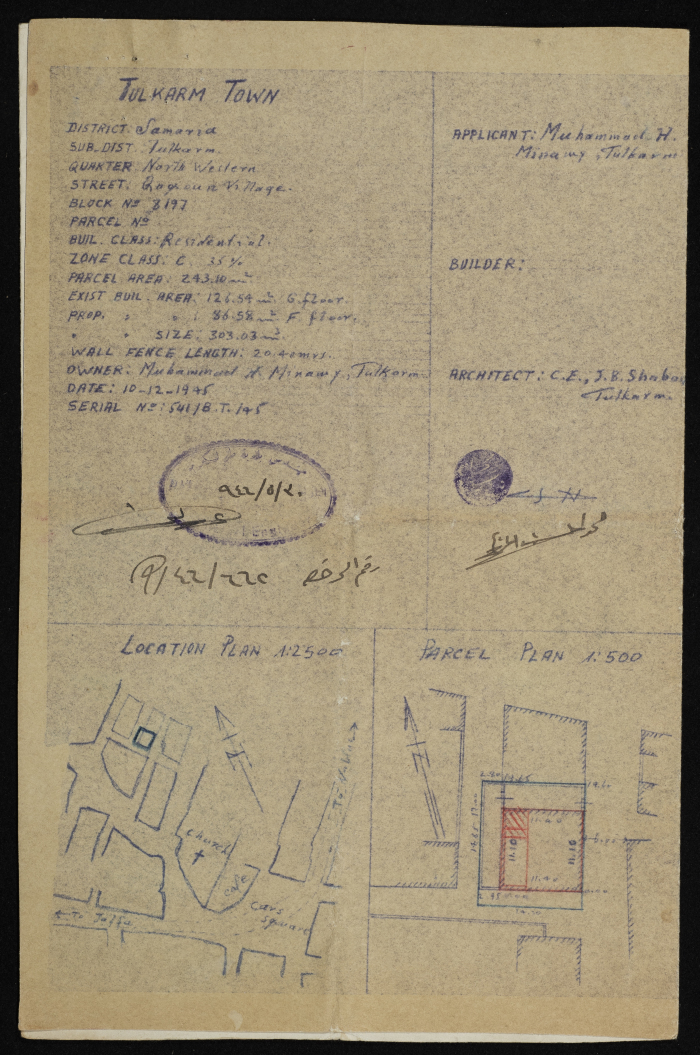 TULKARM TOWN
DISTRICT: Samaria
SUB. DIST. Tulkarm.
QUARTER North Western
STREET: Village.
BLOCK Nº 8197
PARCEL Nº
BUIL. CLASS: Residential.
ZONE CLASS: C. 35%
PARCEL AREA: 243.10 m²
EXIST BUIL. AREA: 126.54 m² G. floor.
PROP. " " : 86.58 m² F. floor.
" " SIZE: 303.03 m³
WALL FENCE LENGTH: 20.40 mrs.
OWNER: Muhammad H. Minawy, Tulkarm
DATE: 10-12-1945
SERIAL Nº: 541/B.T./45
APPLICANT: Muhammad H.
Minawy, Tulkarm
BUILDER:
ARCHITECT: C.E., J.B. Shabas
Tulkarm.
رقم الرخصة
LOCATION PLAN 1:2500
Church
Cafe
Cars
square
To Jaffa
To Nablus
PARCEL PLAN 1:500
11.40
11.10
11.10
11.40